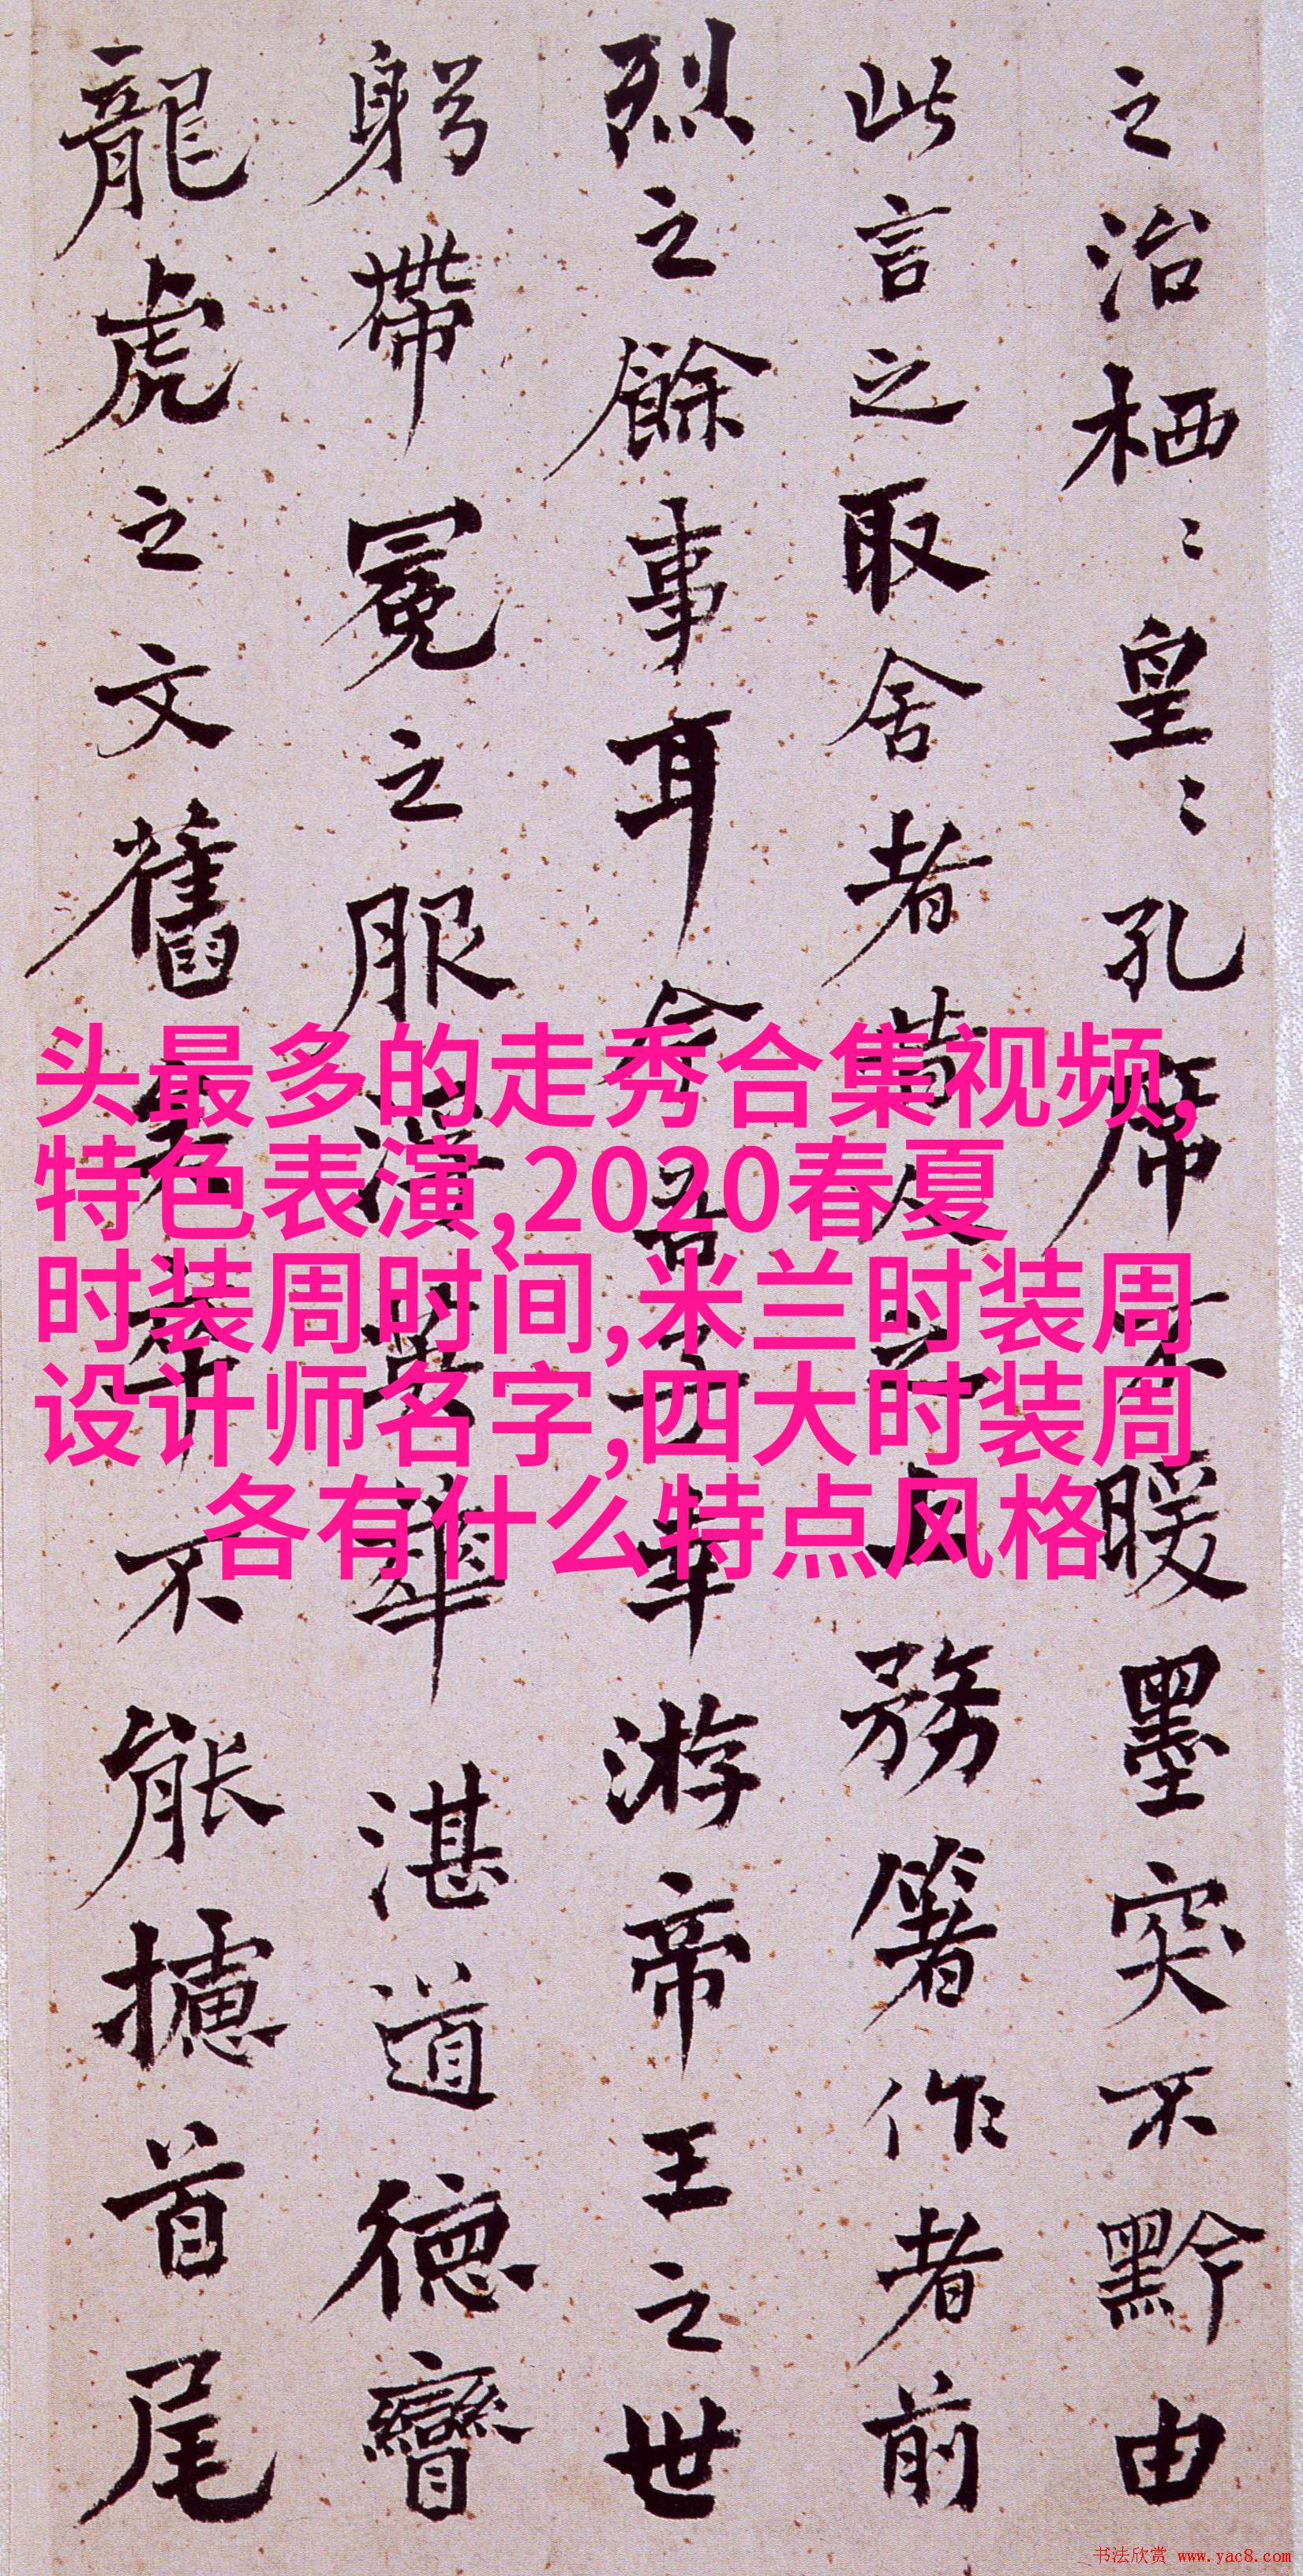 之治栖〻皇〻孔席不暖墨突不黔由
此言之取舍者昔人之上務箸作者前
烈之餘事耳今吾子幸游帝王之世
躬帶冕之服浮英華湛道德矕
龍虎之文舊矣卒不能攄首尾
头最多的走秀合集视频,
特色表演,2020春夏
时装周时间,米兰时装周
设计师名字,四大时装周
各有什么特点风格
书法欣赏 www.yac8.com